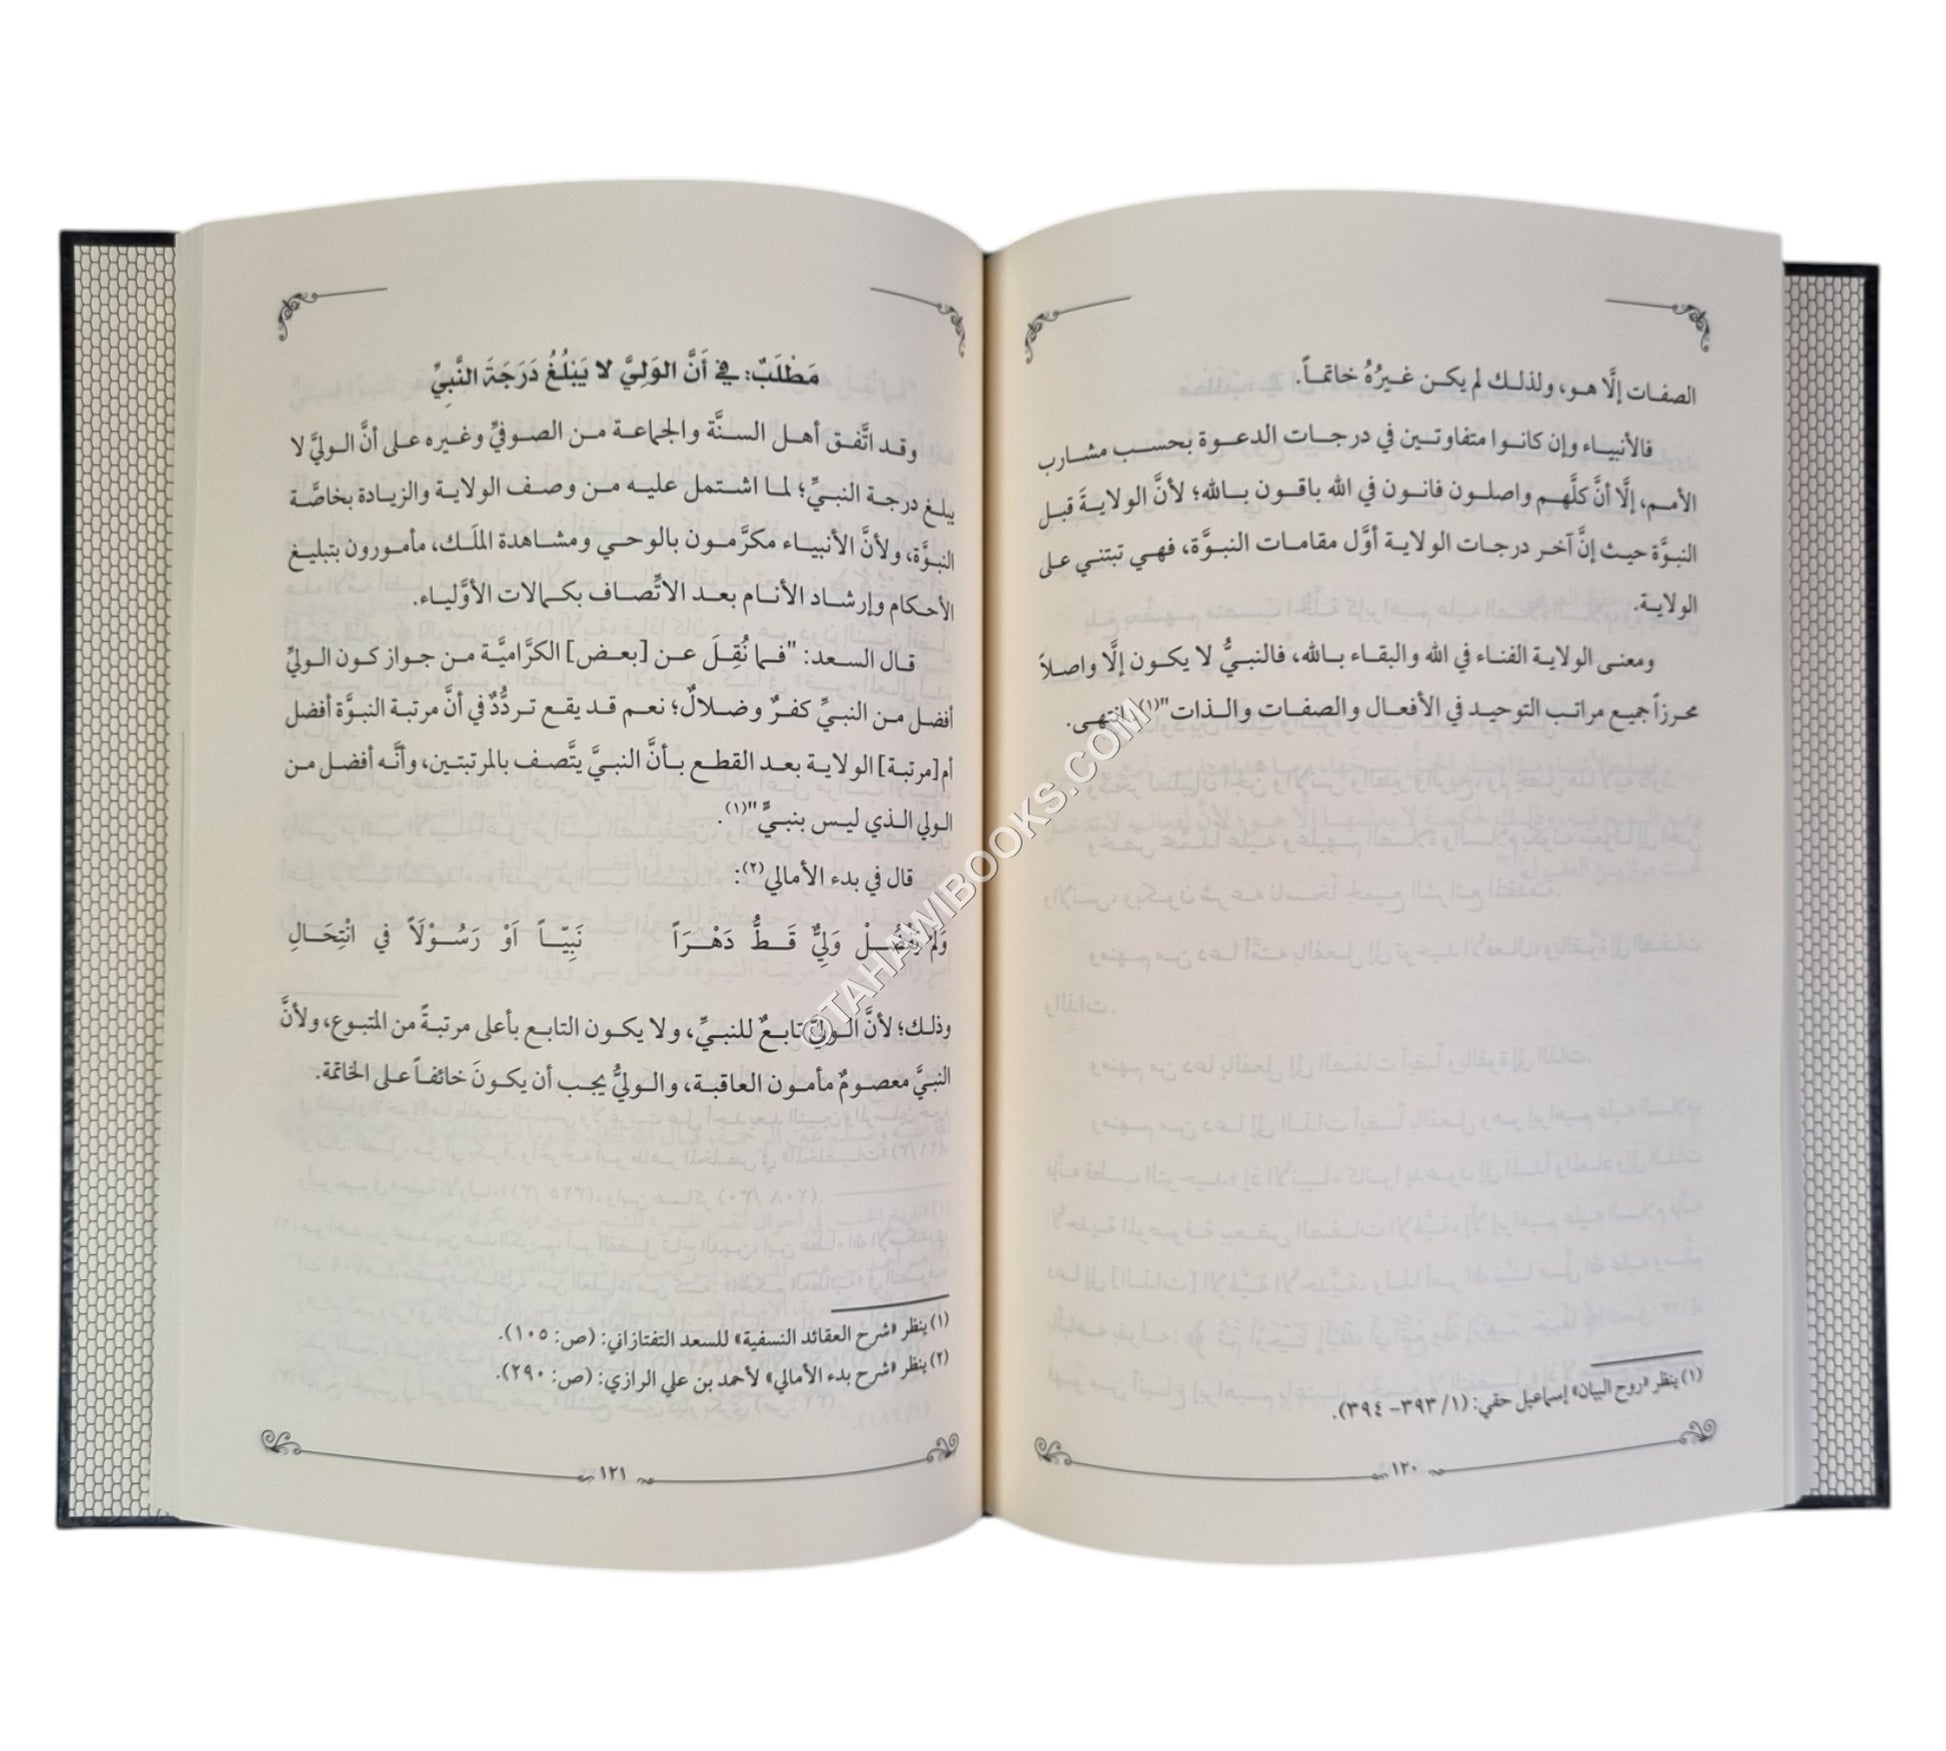 الصفات إلَّا هو، ولذلك لم يكن غيرُهُ خاتماً.
فالأنبياء وإن كانوا متفاوتين في درجات الدعوة بحسب مشارب
الأمم، إلَّا أنَّ كلَّهم واصلون فانون في الله باقون بالله؛ لأنَّ الولايةَ قبل
النبوَّة حيث إنَّ آخر درجات الولاية أوَّل مقامات النبوَّة، فهي تبتني على
الولاية.
ومعنى الولاية الفناء في الله والبقاء بالله، فالنبيُّ لا يكون إلَّا واصلاً
محرزاً جميع مراتب التوحيد في الأفعال والصفات والذات"(١) انتهى.
(١) ينظر «روح البيان» إسماعيل حقي: (١/ ٣٩٣- ٣٩٤).
١٢٠
مَطْلَبٌ: في أَنَّ الوَلِيَّ لا يَبْلُغُ دَرَجَةَ النَّبِيِّ
وقد اتَّفق أهل السنَّة والجماعة من الصوفيِّ وغيره على أنَّ الوليَّ لا
يبلغ درجة النبيِّ؛ لما اشتمل عليه من وصف الولاية والزيادة بخاصَّة
النبوَّة، ولأنَّ الأنبياء مكرَّمون بالوحي ومشاهدة الملَك، مأمورون بتبليغ
الأحكام وإرشاد الأنام بعد الاتِّصاف بكمالات الأوَّلياء.
قال السعد: "فما نُقِلَ عن [بعض] الكرَّاميَّة من جواز كون الوليِّ
أفضل من النبيِّ كفرٌ وضلالٌ؛ نعم قد يقع تردُّدٌ في أنَّ مرتبة النبوَّة أفضل
أم [مرتبة] الولاية بعد القطع بأنَّ النبيَّ يتَّصف بالمرتبتين، وأنَّه أفضل من
الولي الذي ليس بنبيٍّ"(١).
قال في بدء الأمالي(٢):
وَلَمْ يَفْضُلْ وَلِيٌّ قَطُّ دَهْرَاً نَبِيّاً اَوْ رَسُوْلَاً في انْتِحَالِ
وذلك؛ لأنَّ الوليَّ تابعٌ للنبيِّ، ولا يكون التابع بأعلى مرتبةً من المتبوع، ولأنَّ
النبيَّ معصومٌ مأمون العاقبة، والوليُّ يجب أن يكونَ خائفاً على الخاتمة.
(١) ينظر «شرح العقائد النسفية» للسعد التفتازاني: (ص: ١٠٥).
(٢) ينظر «شرح بدء الأمالي» لأحمد بن علي الرازي: (ص: ٢٩٠).
١٢١
©TAHAWIBOOKS.COM